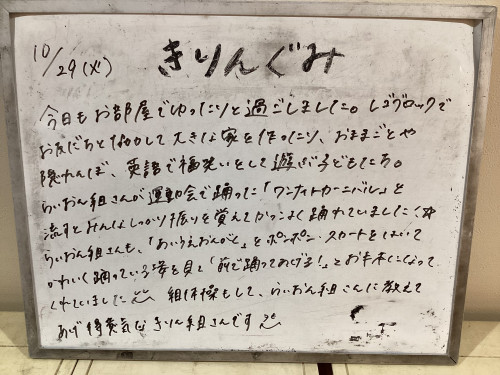 10/29(火)
きりんぐみ
今日もお部屋でゆったりと過ごしました。レゴブロックで
お友だちと協力して大きな家を作ったり、おままごとや
隠れんぼ、英語で福笑いをして遊ぶ子どもたち。
らいおん組さんが運動会で踊った「ワンナイトカーニバル」を
流すとみんなしっかり振りを覚えてかっこよく踊れていました!
らいおん組さんも、「あいうえおんがく」をポンポン・スカートをはいて
かわいく踊っている姿を見て「前で踊ってあげる!」とお手本になって
くれていました 組体操もして、らいおん組さんに教えて
あげ得意気なきりん組さんです